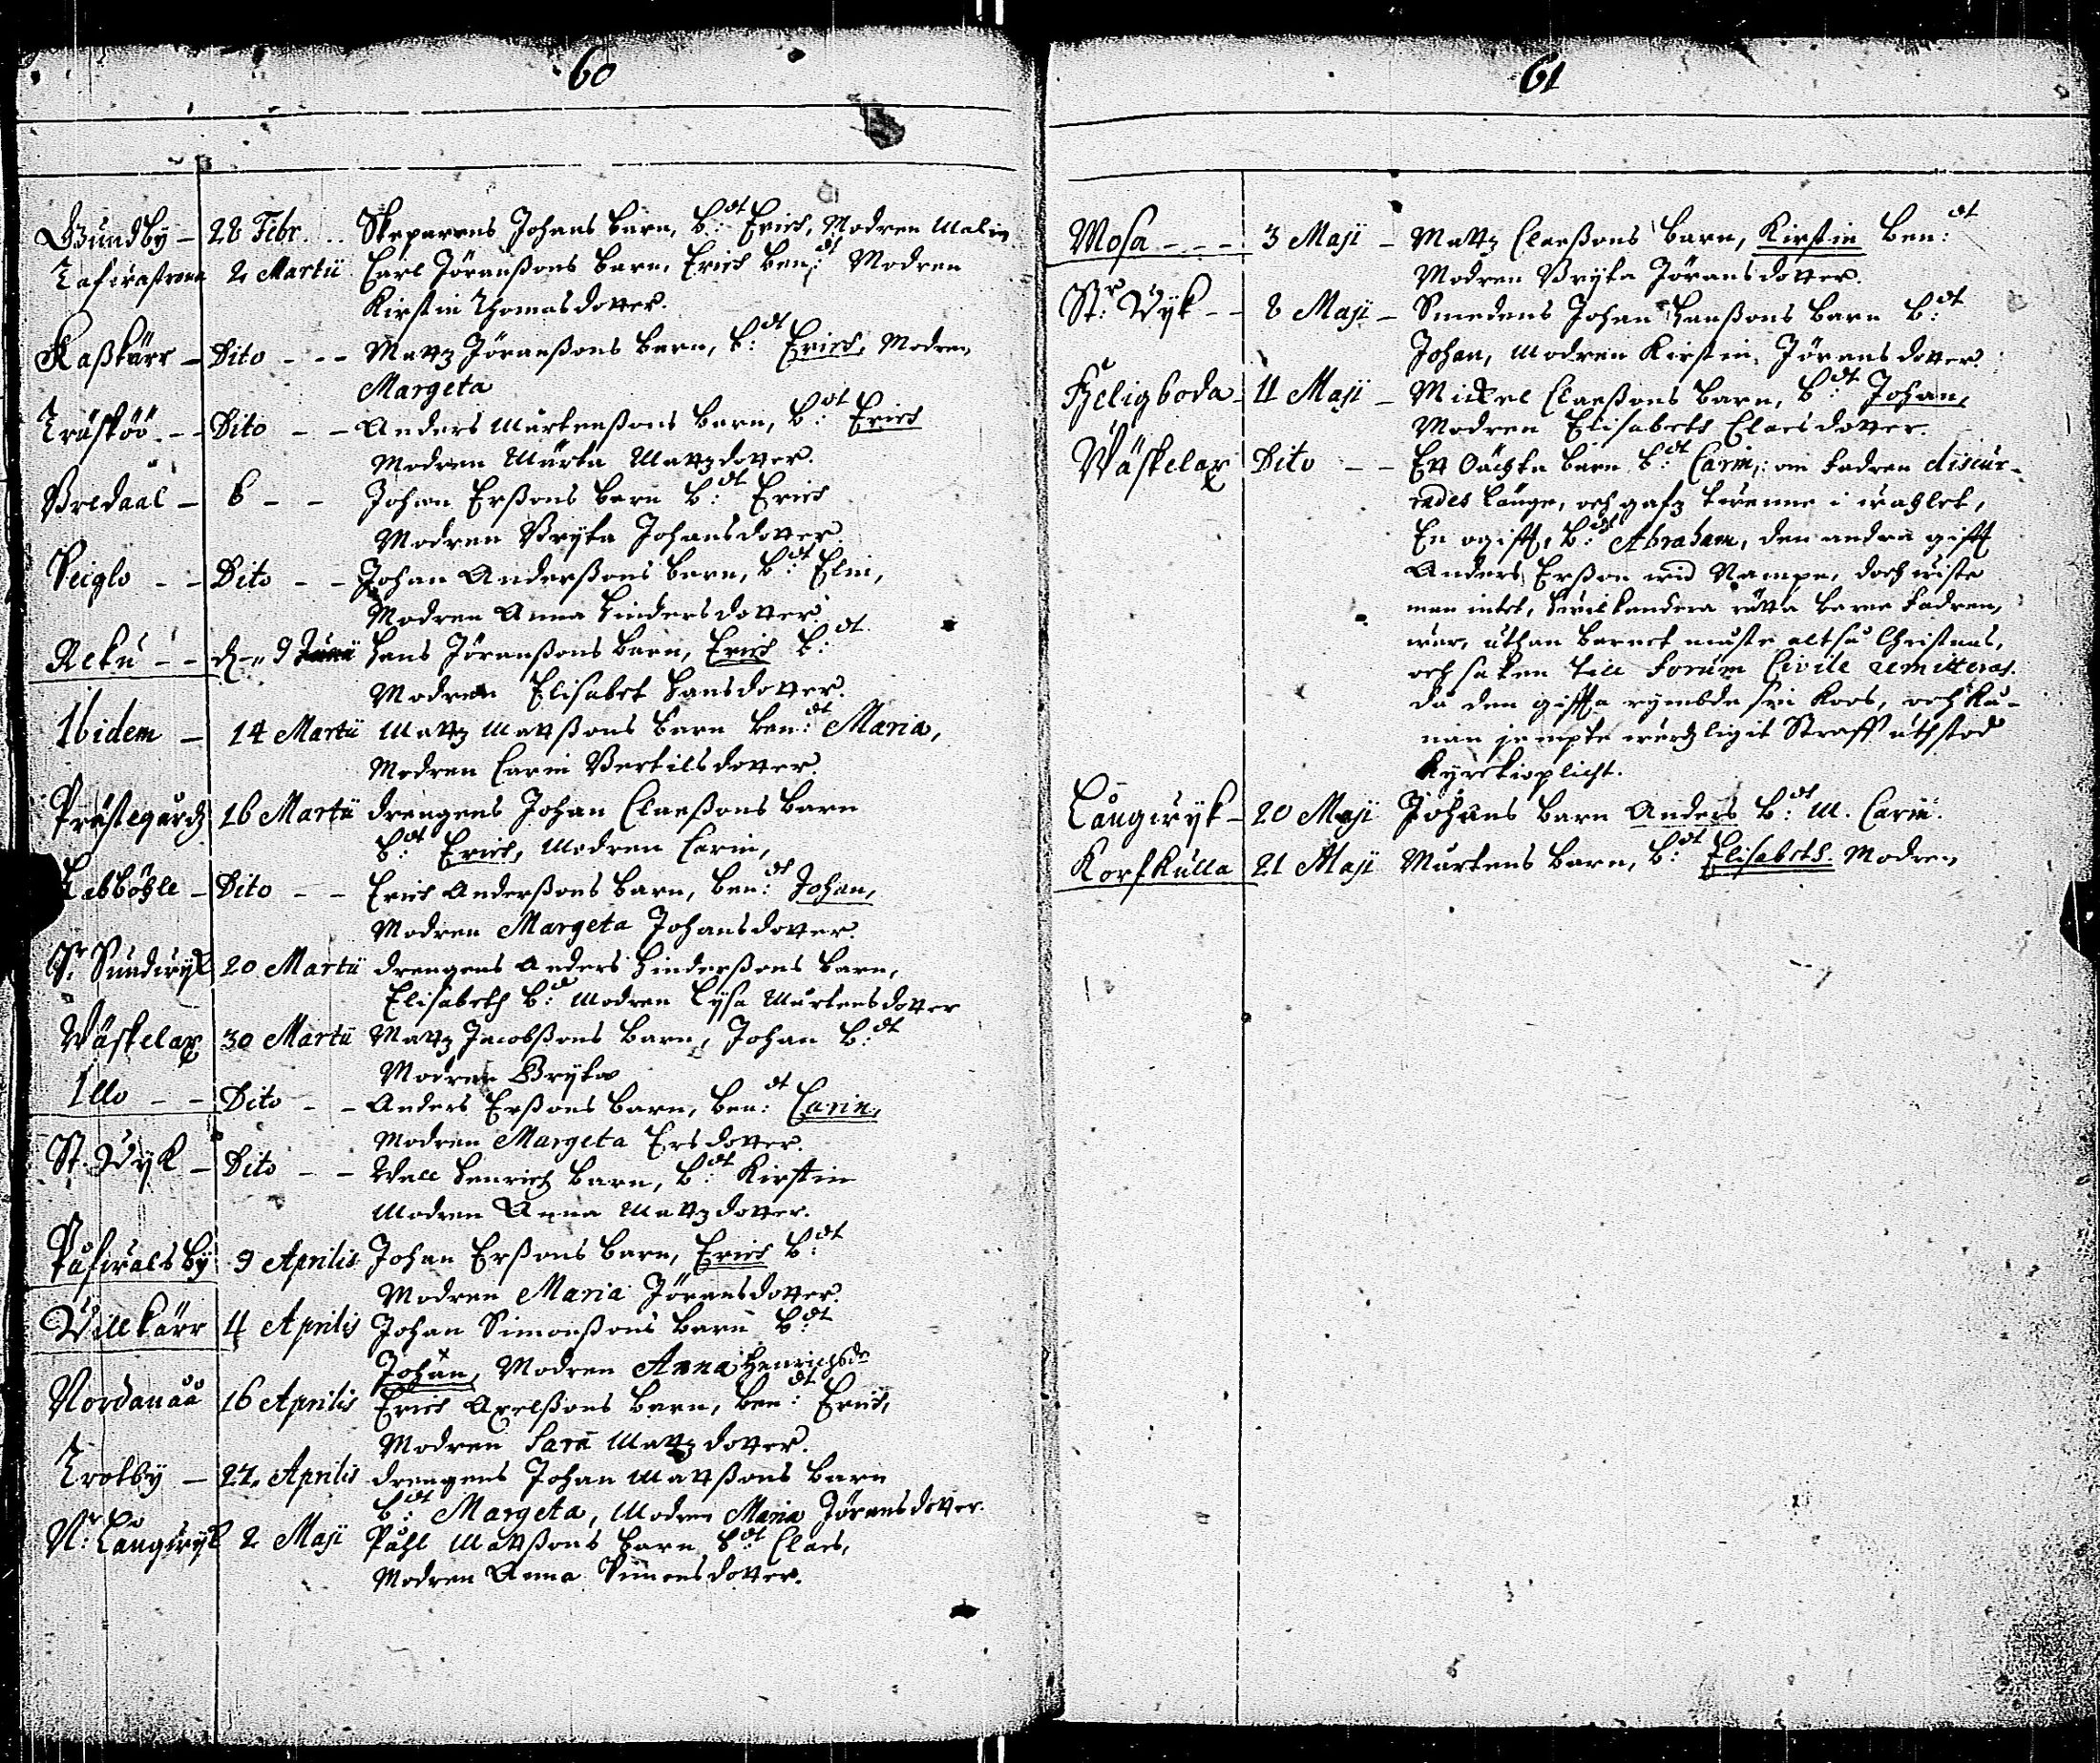 60
Gundby - 28 Febr. .. Skeparens Johans barn, b:dt Erich, Modren Malin
Tafwastrena 2 Martii Carl Jöranßons barn, Erich ben:dt Modren
Kirstin Thomasdotter.
Kaßkärr - Dito - - - Mattz Jöranßons barn, b:dt Erich, Modren
Margeta
Träsköö - - Dito - - Anders Mårtenßons barn, b:dt Erich
Modren Märta Mattzdotter.
Bredaal - 6 - - Johan Erßons barn b:dt Erich
Modren Bryta Johansdotter.
Peiglo - - Dito - - Johan Anderßons barn, b:dt Elin,
Modren Anna Hindersdotter.
Reku - - d. 9 Hans Jöranßons barn, Erich b:dt
Modren Elisabet Hansdotter.
Ibidem - 14 Martii Mattz Mattßons barn ben:dt Maria,
Modren Carin Bertilsdotter.
Prästegårdz 16 Martii drengens Johan Claeßons barn
b:dt Erich, Modren Carin,
Labböhle - Dito - - Erich Anderßons barn, ben:dt Johan,
Modren Margeta Johansdotter.
Sr Sundwyk 20 Martii drengens Anders Hinderßons barn,
Elisabeth b:dt Modren Lysa Mårtensdotter
Wäskelax 30 Martii Mattz Jacobßons barn, Johan b:dt
Modren Bryta
Illo - - Dito - - Anders Erßons barn, ben:dt Carin,
Modren Margeta Ersdotter.
St: Wyk - Dito - - Wall Henrich barn, b:dt Kirstin
Modren Anna Mattzdotter.
Påfwalsby 9 Aprilis Johan Erßons barn, Erich b:dt
Modren Maria Jöransdotter.
Willkärr 4 Aprilis Johan Simonßons barn b:dt
Johan, Modren Anna Henrichsdr
Nordanåå 16 Aprilis Erich Axelßons barn, ben:dt Erich,
Modren Sara Mattzdotter.
Trotby - 22 Aprilis drengens Johan Mattßons barn
b:dt Margeta, Modren Maria Jöransdotter.
Nr: Långwyk 2 Maji Påhl Mattßons barn b:dt Claes,
Modren Anna Simonsdotter.
61
Mosa - - - 3 Maji - Mattz Claeßons barn, Kirstin ben:dt
Modren Bryta Jöransdotter.
Str: Wyk - - 8 Maji - Smedens Johan Hanßons barn b:dt
Johan, Modren Kirstin Jöransdotter.
Heligboda - 11 Maji - Mickel Claeßons barn, b:dt Johan,
Modren Elisabeth Claesdotter.
Wäskelax Dito - - Ett Oächta barn b:dt Carin, om fadren discur-
rades länge, och gafz twenne i wahlet,
En ogifft, b:dt Abraham, den andra gifft
Anders Erßon wid Rampe, doch wiste
man intet, hwilkendera rätta barne fadren,
war, uthan barnet måste altså Christnas,
och saken till Forum Civile remitteras.
då den giffta rymbde sin koos, och ku-
nan jempte werdzligit Straff uthstod
Kyrckioplicht.
Långwyk - 20 Maji Johans barn Anders b:dt M. Carin.
Korfkulla 21 Maji Mårtens barn, b:dt Elisabeth. Modren